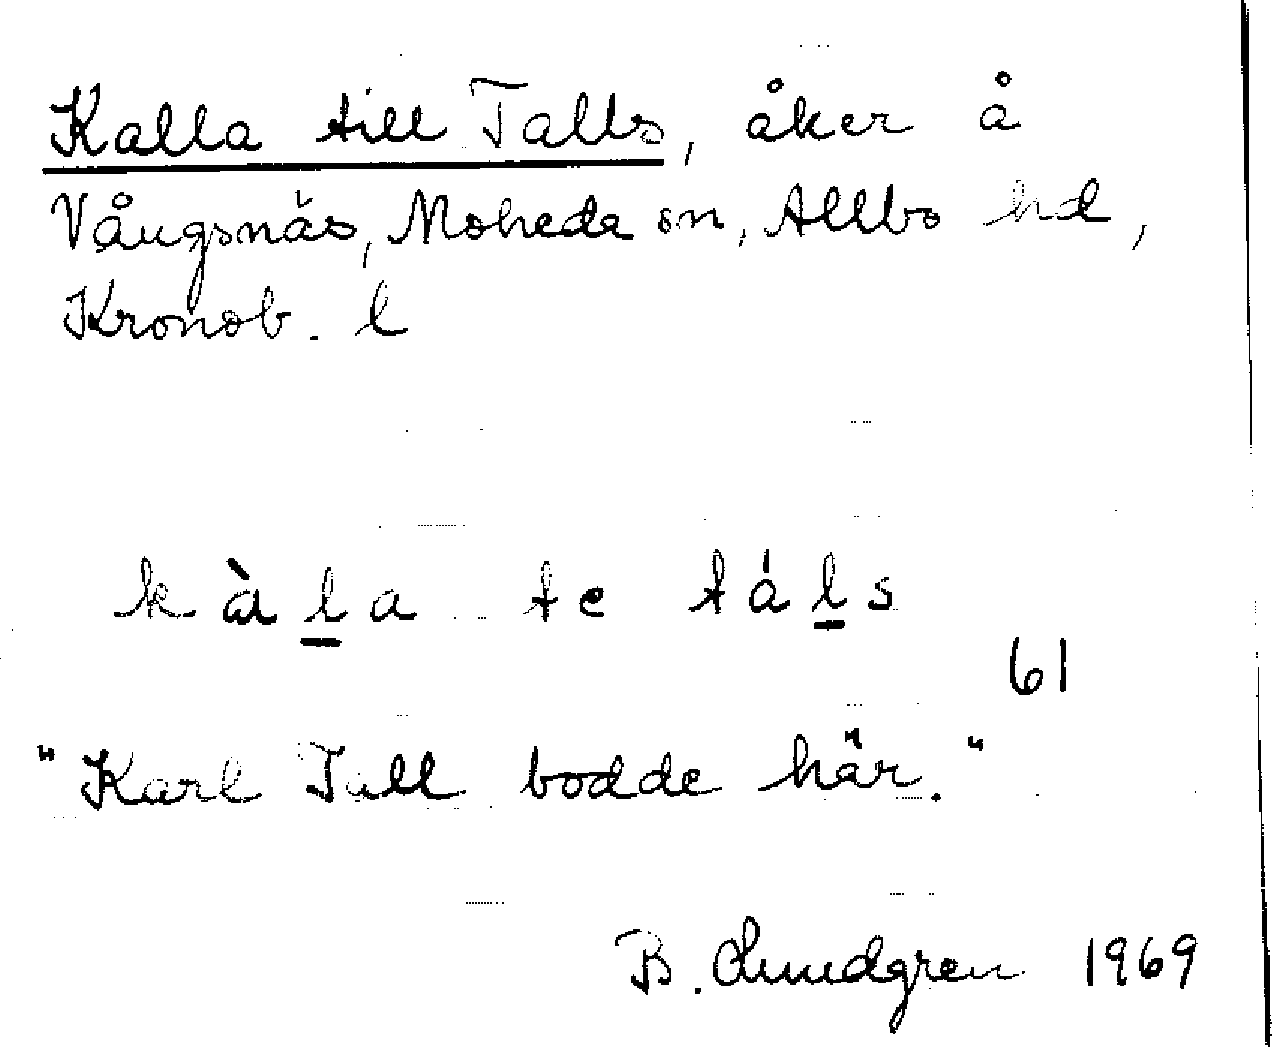 Kalla till Talls, åker å
Vångsnäs, Moheda sn, Allbo hd,
Kronob. l
kàl̲a te tál̲s
61
"Karl Tall bodde här."
B. Lundgren 1969